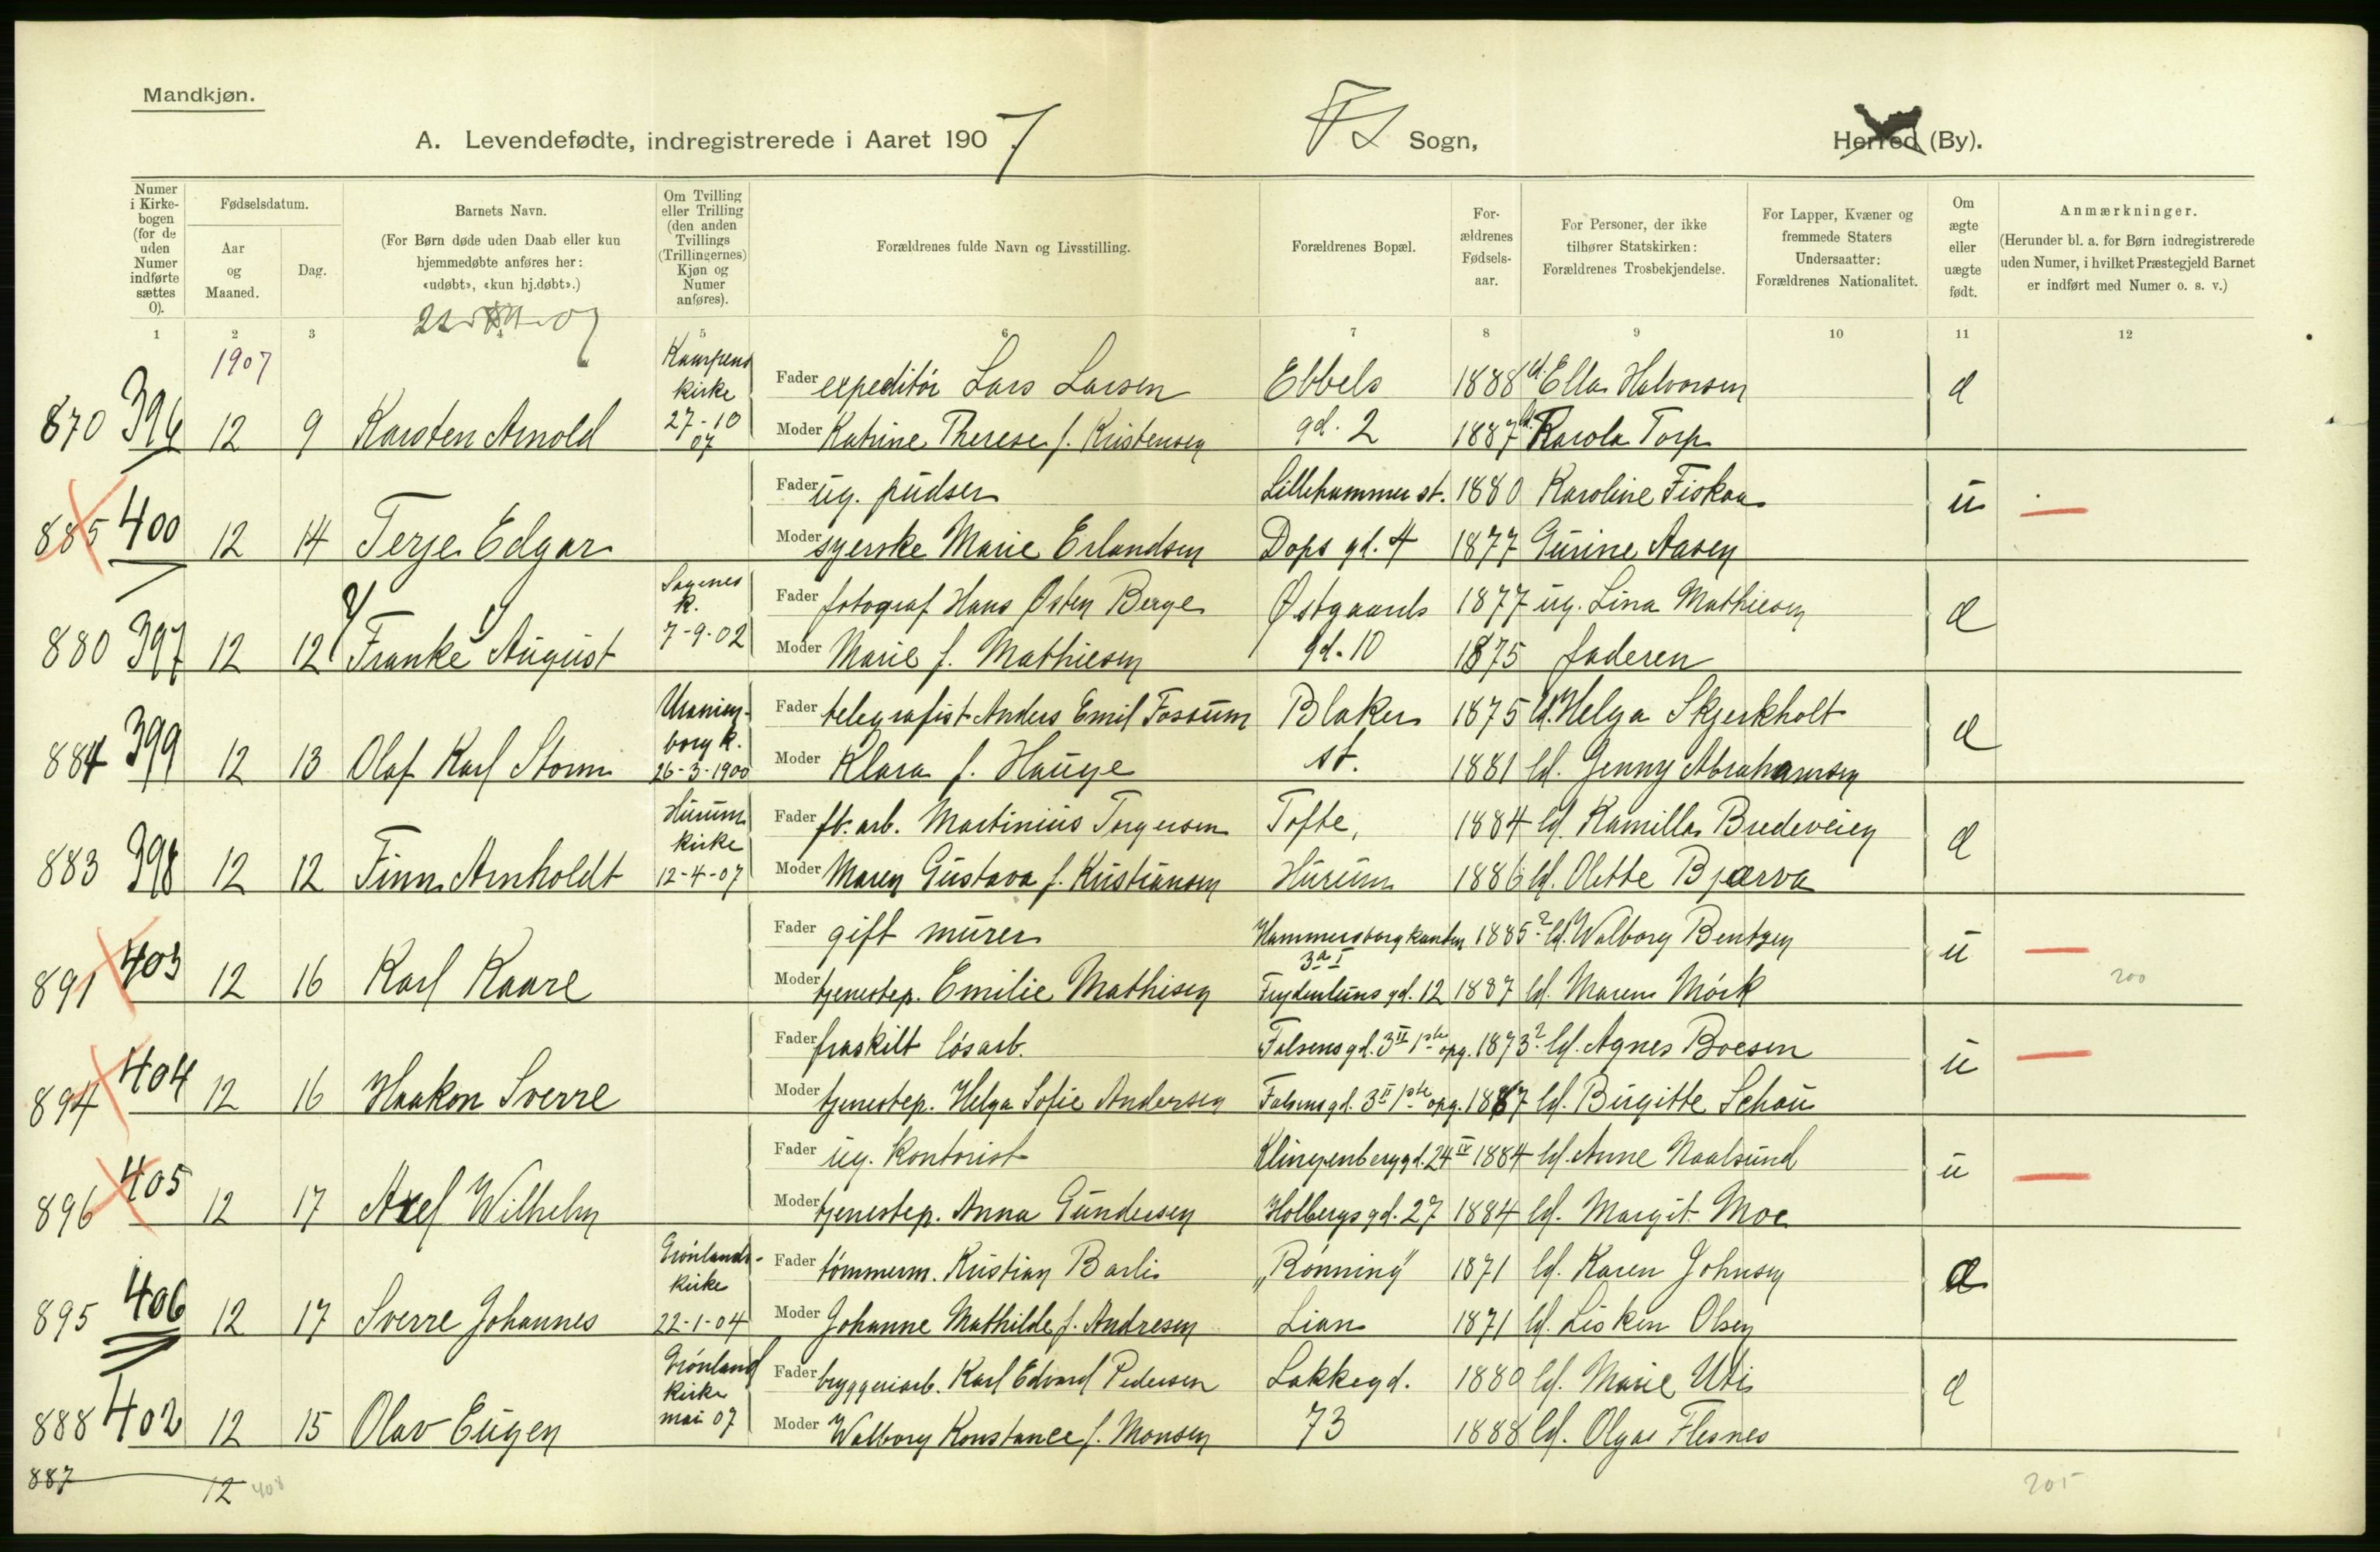 Mandkjøn.
A. Levendefødte, indregistrerede i Aaret 1907 FS Sogn, Herred (By).
Numer i Kirkebogen (for de uden Numer indførte sættes 0).
Fødselsdatum.
Aar og Maaned.
Dag.
Barnets Navn.
(For Børn døde uden Daab eller kun hjemmedøbte anføres her: «udøbt», «kun hj.døbt».)
Om Tvilling eller Trilling (den anden Tvillings (Trillingernes) Kjøn og Numer anføres).
Forældrenes fulde Navn og Livsstilling.
Forældrenes Bopæl.
Forældrenes Fødselsaar.
For Personer, der ikke tilhører Statskirken: Forældrenes Trosbekjendelse.
For Lapper, Kvæner og fremmede Staters Undersaatter: Forældrenes Nationalitet.
Om ægte eller uægte født.
Anmærkninger.
(Herunder bl. a. for Børn indregistrerede uden Numer, i hvilket Præstegjeld Barnet er indført med Numer o. s. v.)
1 2 3 4 5 6 7 8 9 10 11 12
1907
Kampens kirke 27-10 07
Fader expeditör Lars Larsen Ebbels 1888 Ella Halvorsen
870 396 12 9 Karsten Arnold Moder Katrine Therese f. Kristensen gd. 2 1887 Karola Torp
Fader ug. pudser Lillehammer st. 1880 Karoline Fiskaa u
885 400 12 14 Terje Edgar Moder syerske Marie Erlandsen Dops gd. 4 1877 Gurine Aasen
Sagenes k. 7-9-02
Fader fotograf Hans Østen Berge Østgaards 1877 ug. Lina Mathiesen
880 397 12 12 Franke August Moder Marie f. Mathiesen gd. 10 1875 faderen
Uranienborg k. 26-3-1900
Fader telegrafist Anders Emil Fossum Blaker 1875 Helga Skjerkholt
884 399 12 13 Olaf Karl Storm Moder Klara f. Hauge st. 1881 Jenny Abrahamsen
Hurum kirke 12-4-07
Fader fb. arb. Martinius Torgersen Tofte, 1884 Kamilla Bredeveien
883 398 12 12 Finn Arnholdt Moder Maren Gustava f. Kristiansen Hurum 1886 Olette Bjærva
Fader gift murer Hammersborgkanten 3 a I 1885? Walborg Bentzen u
891 403 12 16 Karl Kaare Moder tjenestep. Emilie Mathisen Frydenlunsgd. 12 1887 Maren Mörk
200
Fader fraskilt lösarb. Falsensgd. 3 II 1ste opg. 1873? Agnes Boesen u
894 404 12 16 Haakon Sverre Moder tjenestep. Helga Sofie Andersen Falsensgd. 3 II 1ste opg. 1887 Birgitte Schou
Fader ug. Kontorist Klingenberggd. 24 IV 1884 Anne Naalsund u
896 405 12 17 Axel Wilhelm Moder tjenestep. Anna Gundersen Holbergsgd. 27 1884 Margit Moe
Grönlands-kirke 22-1-04
Fader tömmerm. Kristian Barli „Rönning" 1871 Karen Johnsen
895 406 12 17 Sverre Johannes Moder Johanne Mathilde f. Andresen Lian 1871 Lisken Olsen
Grönland kirke mai 07
Fader bryggeriarb. Karl Edvard Pedersen Lakkegd. 1880 Marie Uti
888 402 12 15 Olav Eugen Moder Walborg Konstance f. Monsen 73 1888 Olga Flesnes
887 12 408 205